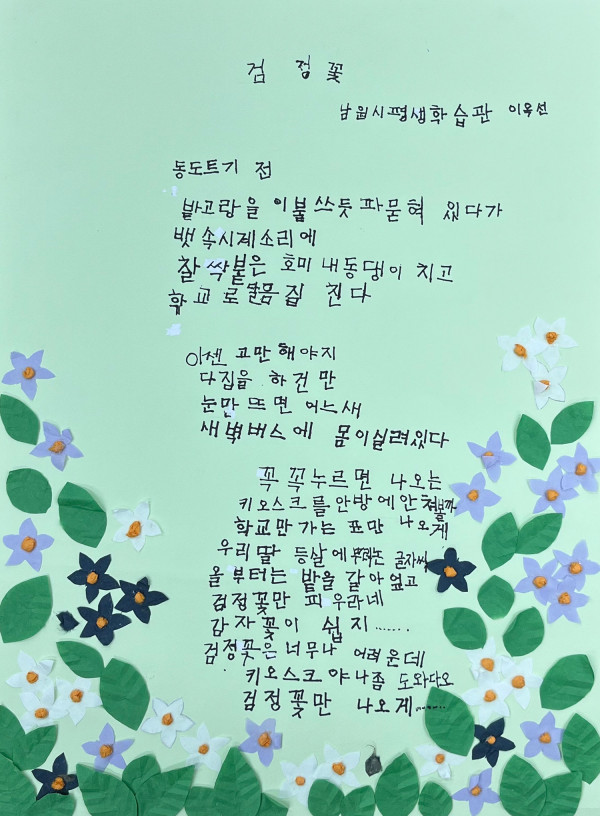 검정꽃
남원시평생학습관 이옥선
동도트기 전
밭고랑을 이불쓰듯 파묻혀 있다가
뱃속시계소리에
찰싹붙은 호미 내동댕이 치고
학교로 줄몸집 친다
이센 고만해야지
다집을 하건만
눈만 뜨면 어느새
새벽버스에 몸이실려있다
꼭 꼭누르면 나오는
키오스크를안방에안쳐볼까
학교만가는 표만 나오게
우리딸 등살에 글자싸
올부터는 밭을 갈아엎고
검정꽃만 피우라네
감자꽃이 쉽지.......
검정꽃은너무나 어려운데
키오스크야나좀 도와다오
검정꽃만 나오게.......